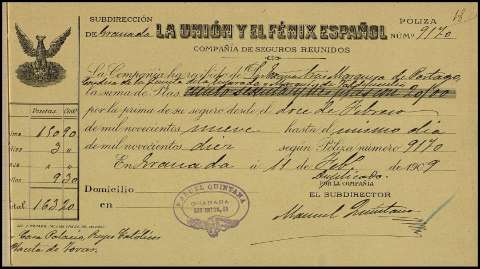 18
SUBDIRECCIÓN
DE Granada
LA UNIÓN Y EL FÉNIX ESPAÑOL
COMPAÑÍA DE SEGUROS REUNIDOS
POLIZA
NÚMº 9170
La Compañía ha recibido de
Marquesa de Portago,
la suma de Ptas.
por la prima de su seguro desde el doce de Febrero
de mil novecientos nueve hasta el mismo día
de mil novecientos diez según Póliza número 9170
En Granada á 11 de Feb 1909
Duplicado
POR LA COMPAÑÍA
EL SUBDIRECTOR
Manuel Quintana
Domicilio
en
MANUEL QUINTANA
GRANADA
Pesetas Cnts
150 90
3 "
" "
9 30
163 20
Casa Palacio, Reyes Católicos
Placeta de Tovar